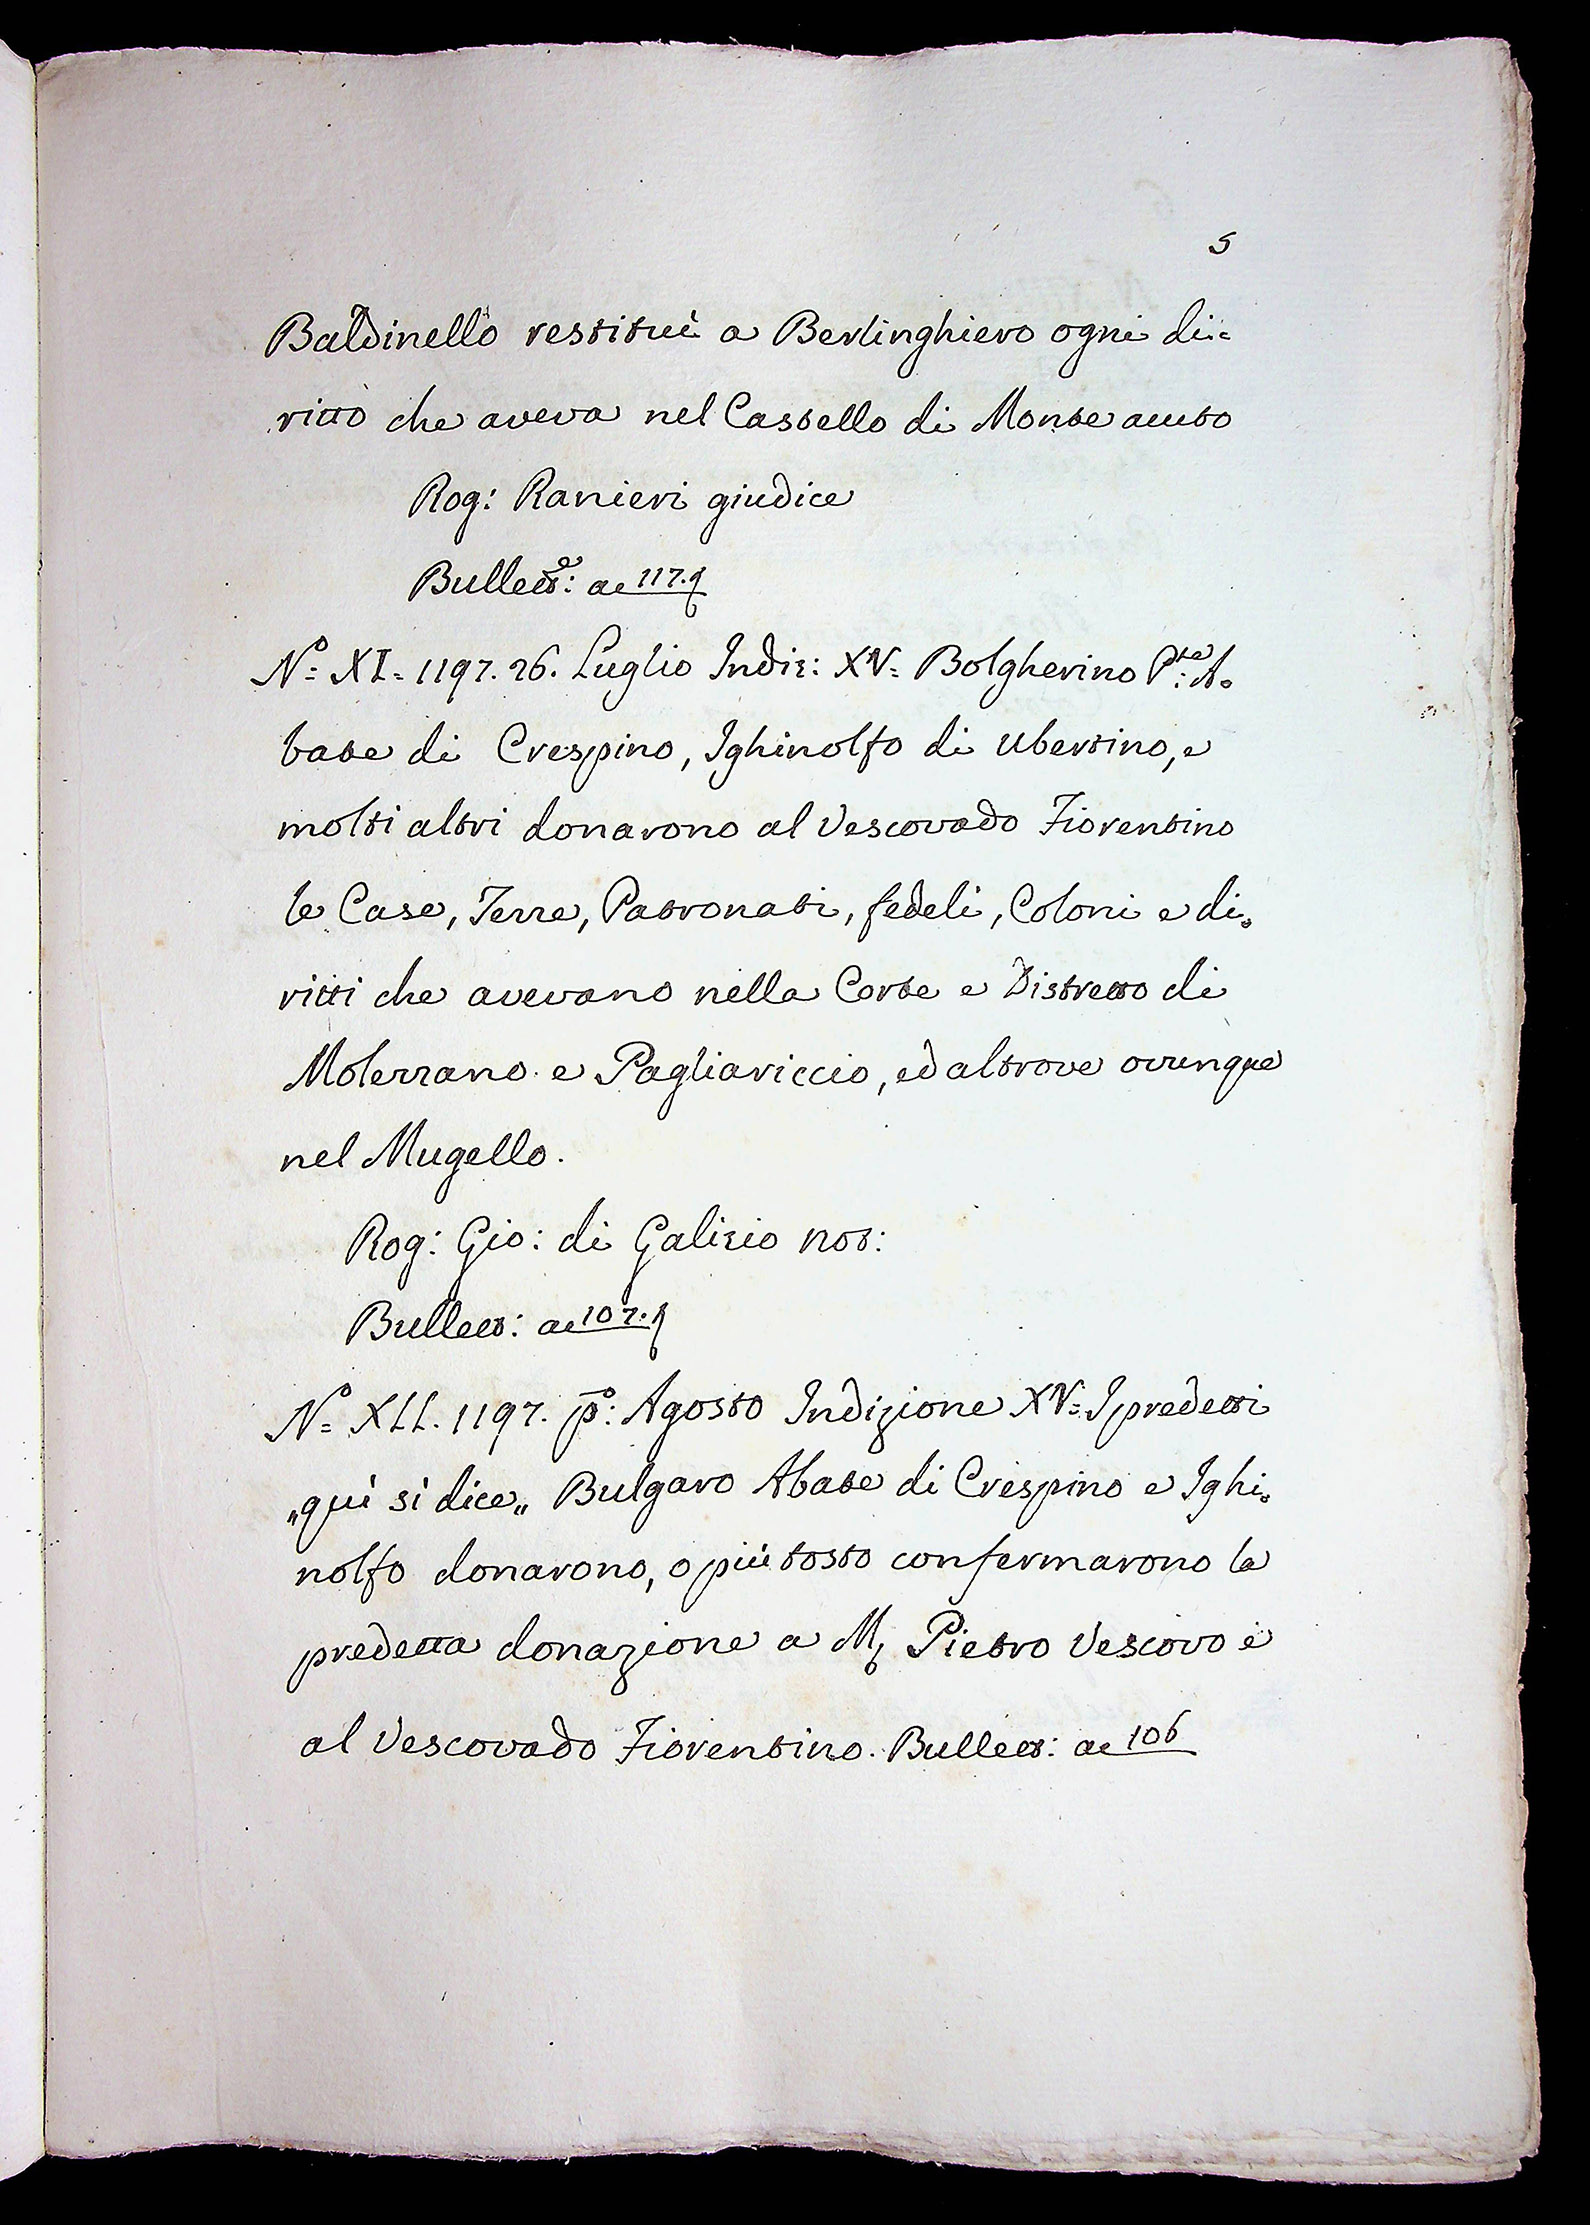 5
Baldinello restituì a Berlinghiero ogni di=
ritto che aveva nel Castello di Monte acuto
Rog: Ranieri giudice
Bullett:e ac 117.
N.o XI. 1197. 26. Luglio Indiz: XV. Bolgherino P:te A=
bate di Crespino, Ighinolfo di Ubertino, e
molti altri donarono al Vescovado Fiorentino
le Case, Terre, Patronati, fedeli, Coloni e di=
ritti che avevano nella Corte e Distretto di
Molezzano e Pagliariccio, ed altrove ovunque
nel Mugello.
Rog: Gio: di Galizio not:
Bullett: ac 107.
N.o XII. 1197. p:o Agosto Indizione XV. I predetti
„qui si dice„ Bulgaro Abate di Crespino e Ighi=
nolfo donarono, o più tosto confermarono la
predetta donazione a M. Pietro Vescovo e
al Vescovado Fiorentino. Bullett: ac 106